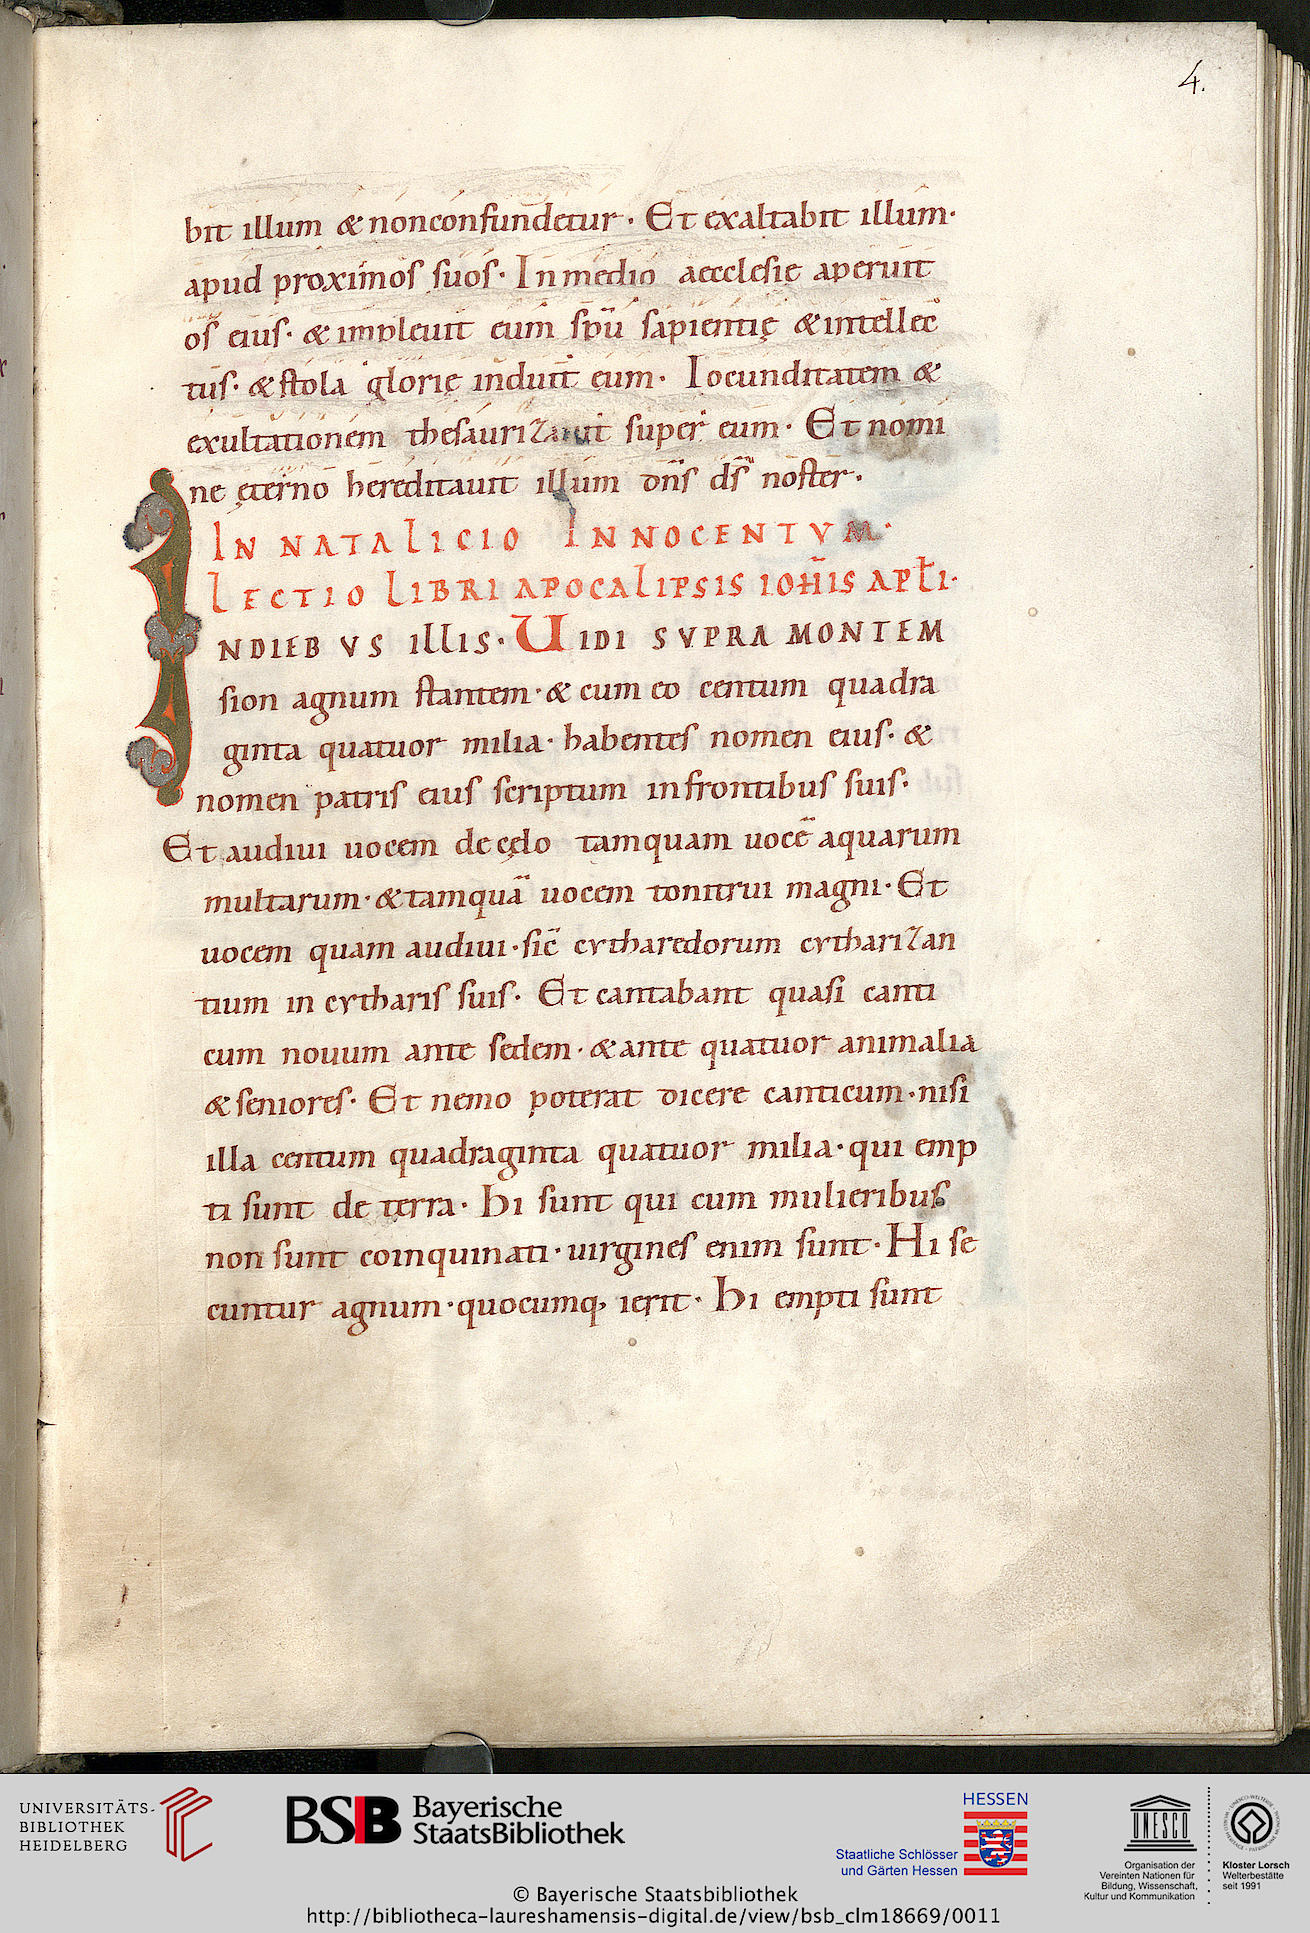 4.
bit illum & nonconfundetur · Et exaltabit illum ·
apud proximos suos · In medio aecclesie aperuit
os eius · & impleuit eum sp̄u sapientię & intellec
tus · & stola glorię induit eum · Iocunditatem &
exultationem thesaurizauit super eum · Et nomi
ne ęterno hereditauit illum dn̄s ds̄ noster ·
IN NATALICIO INNOCENTVM ·
LECTIO LIBRI APOCALIPSIS IOH̄IS APŁI ·
INDIEBVS ILLIS · UIDI SVPRA MONTEM
sion agnum stantem · & cum eo centum quadra
ginta quatuor milia · habentes nomen eius · &
nomen patris eius scriptum infrontibus suis ·
Et audiui uocem de cęlo tamquam uocē aquarum
multarum · & tamquā uocem tonitrui magni · Et
uocem quam audiui · sic̄ cytharedorum cytharizan
tium in cytharis suis · Et cantabant quasi canti
cum nouum ante sedem · & ante quatuor animalia
& seniores · Et nemo poterat dicere canticum · nisi
illa centum quadraginta quatuor milia · qui emp
ti sunt de terra · hi sunt qui cum mulieribus
non sunt coinquinati · uirgines enim sunt · Hi se
cuntur agnum · quocumq; ierit · hi empti sunt
UNIVERSITÄTS-
BIBLIOTHEK
HEIDELBERG
BSB Bayerische
StaatsBibliothek
HESSEN
Staatliche Schlösser
und Gärten Hessen
UNESCO
Organisation der
Vereinten Nationen für
Bildung, Wissenschaft,
Kultur und Kommunikation
Kloster Lorsch
Welterbestätte
seit 1991
© Bayerische Staatsbibliothek
http://bibliotheca-laureshamensis-digital.de/view/bsb_clm18669/0011